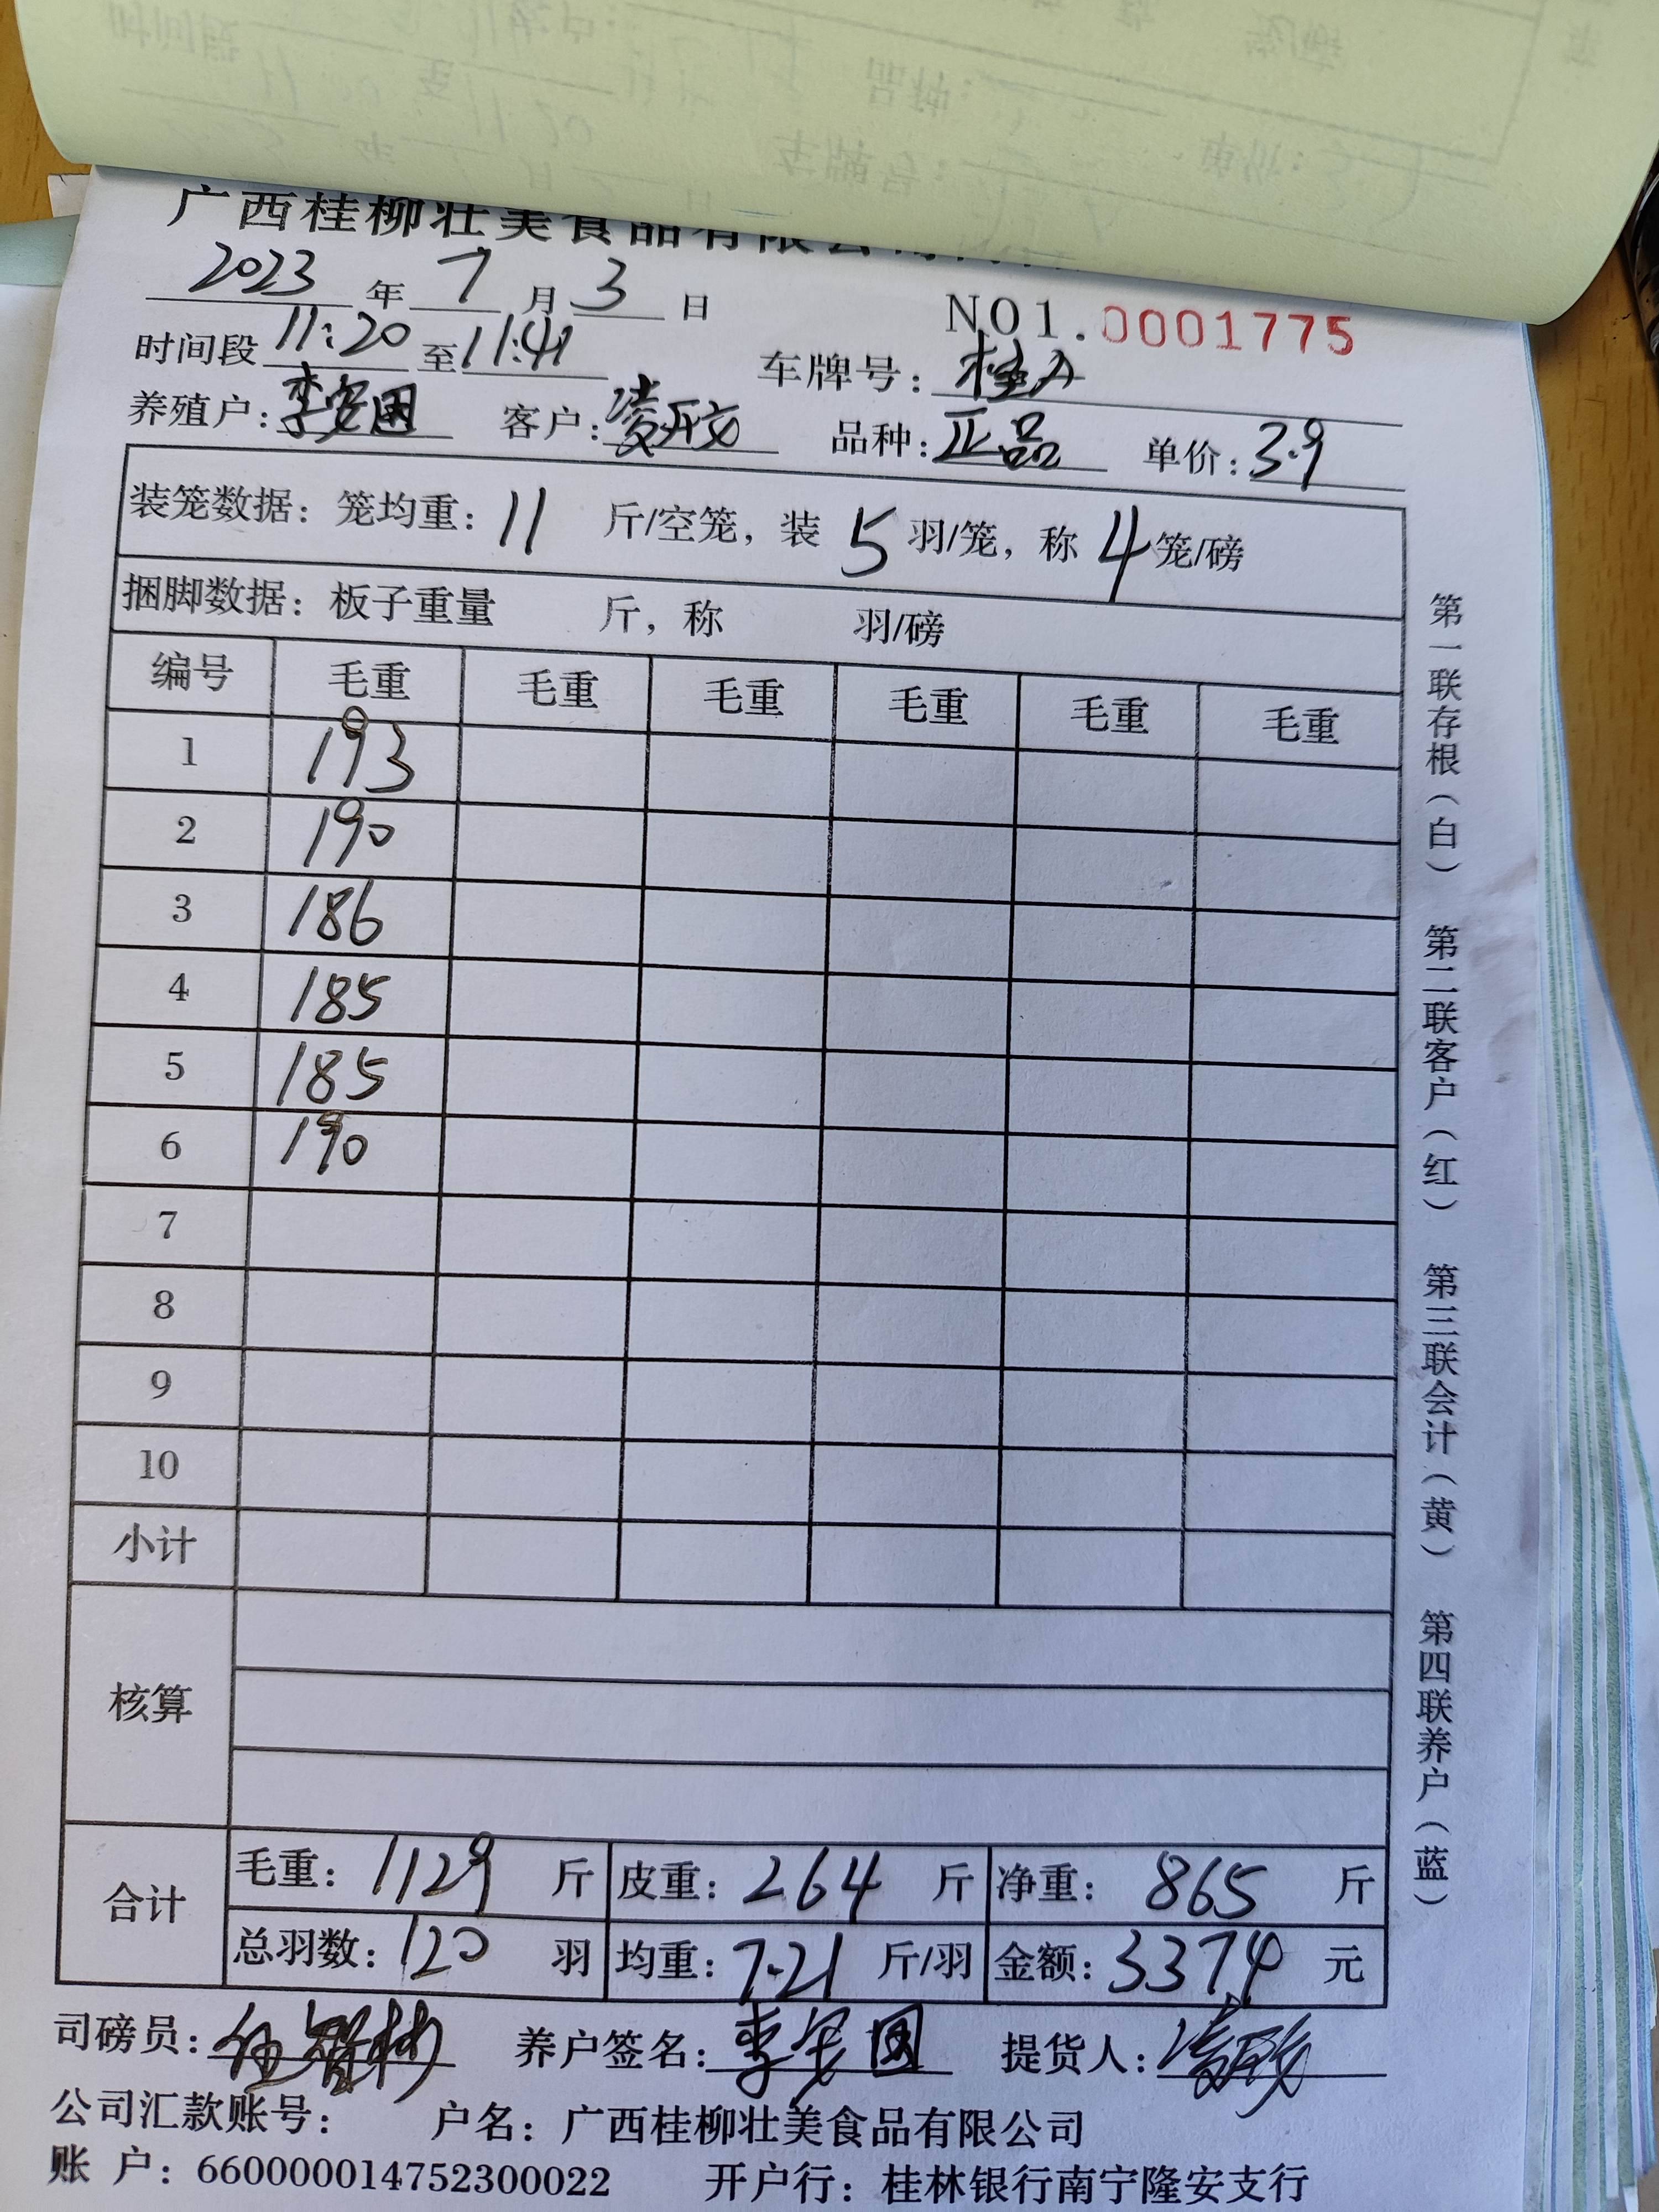 广西桂柳壮美食品有限公司
2023年7月3日 NO1.0001775
时间段11:20至11:41 车牌号：
养殖户：李安国 客户： 品种：正品 单价：3.9
装笼数据：笼均重：11斤/空笼，装5羽/笼，称4笼/磅
捆脚数据：板子重量 斤，称 羽/磅
编号 毛重 毛重 毛重 毛重 毛重 毛重
1 193
2 190
3 186
4 185
5 185
6 190
7
8
9
10
小计
核算
合计 毛重：1129斤 皮重：264斤 净重：865斤
总羽数：120羽 均重：7.21斤/羽 金额：3374元
司磅员： 养户签名：李安国 提货人：
公司汇款账号： 户名：广西桂柳壮美食品有限公司
账 户：660000014752300022 开户行：桂林银行南宁隆安支行
第一联存根（白） 第二联客户（红） 第三联会计（黄） 第四联养户（蓝）